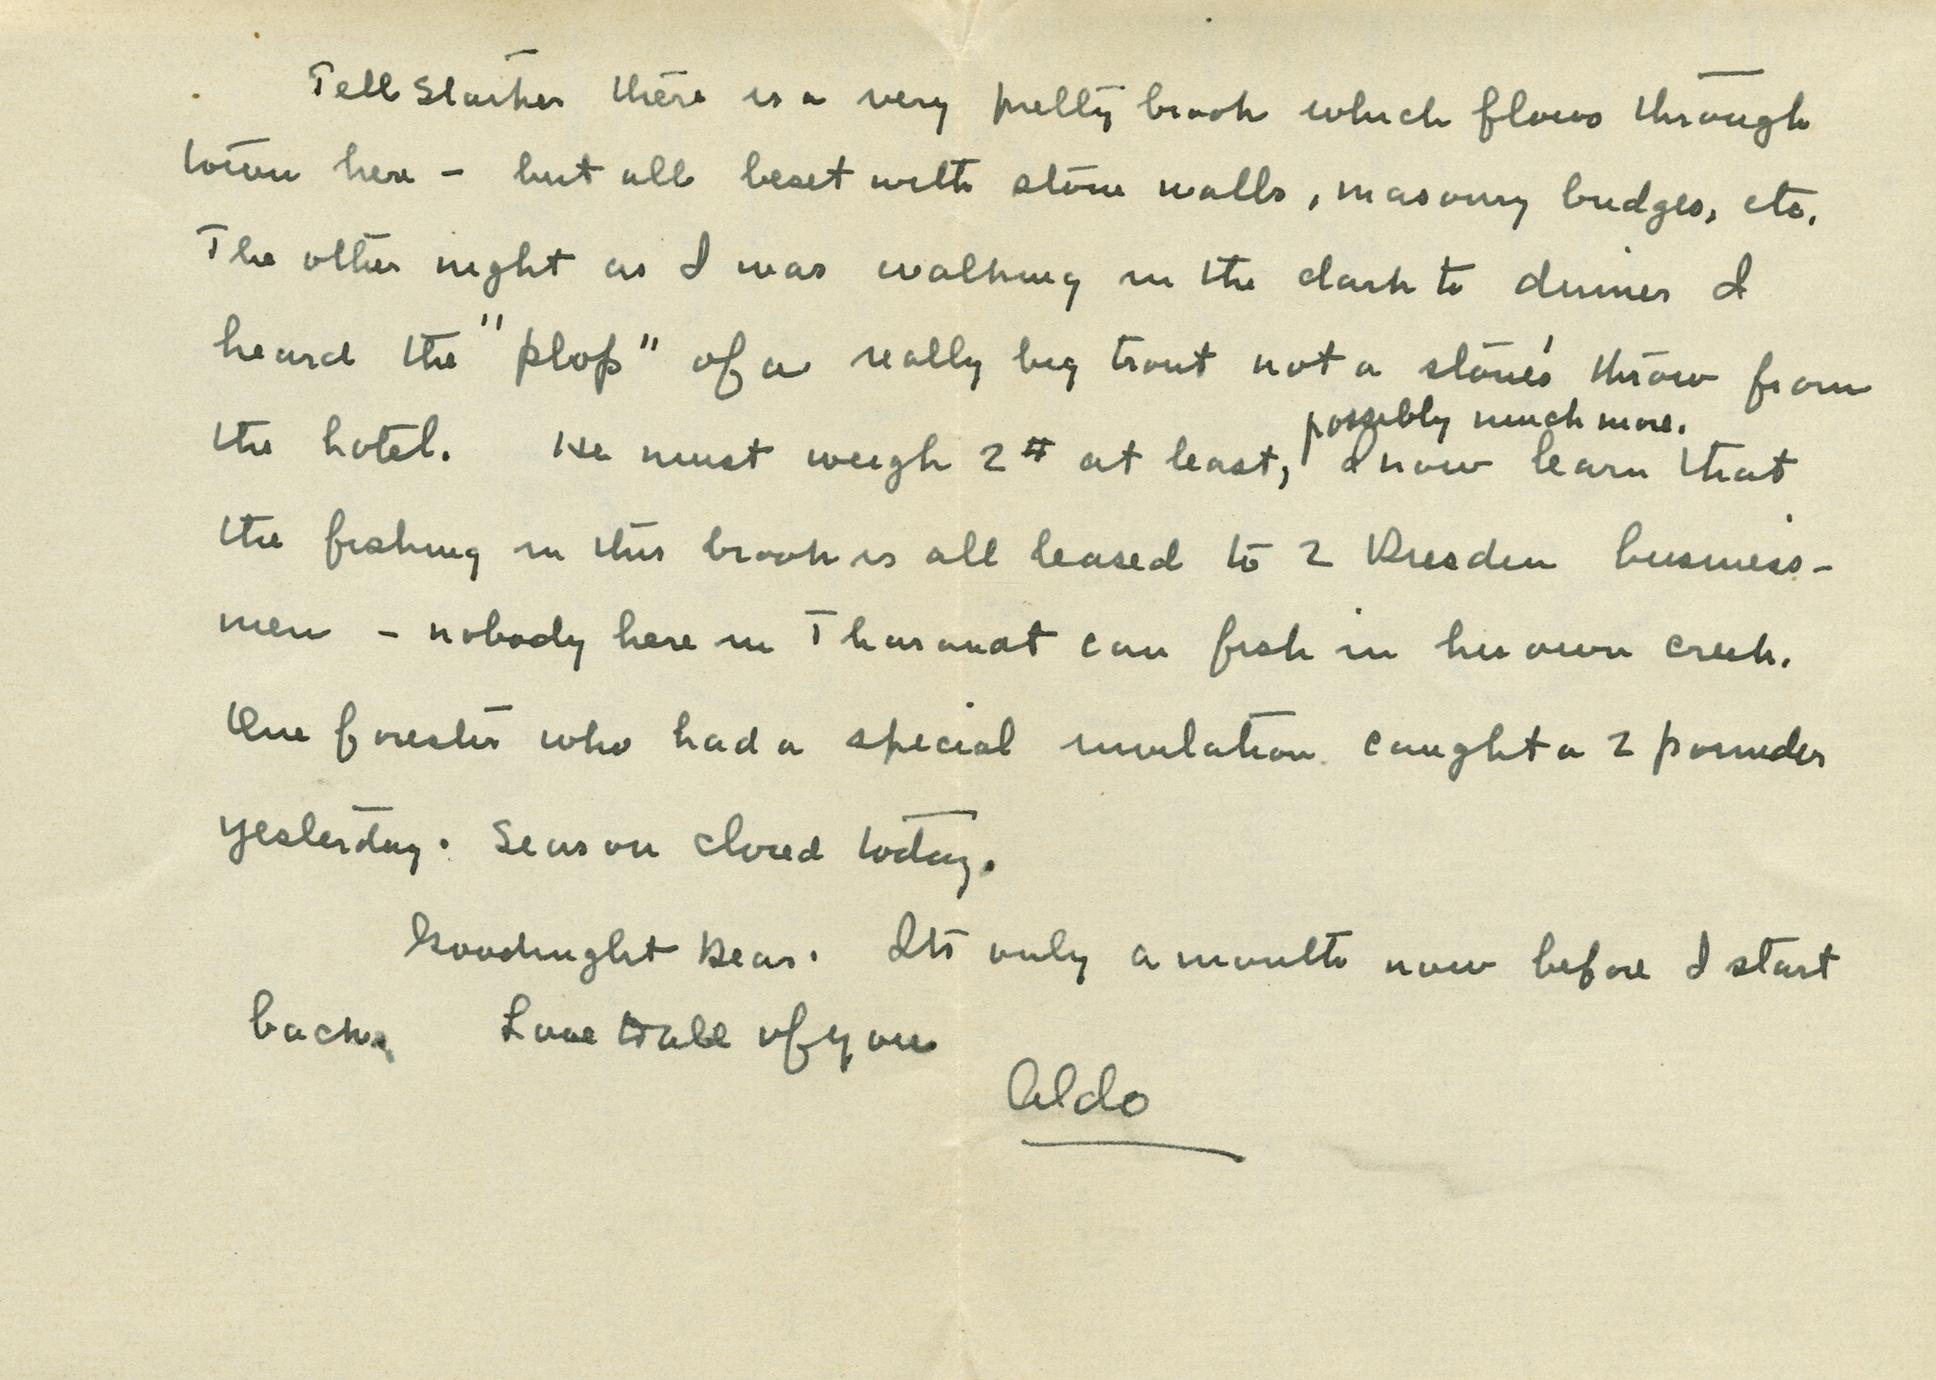 Tell Starker there is a very pretty brook which flows through
town here - but all beset with stone walls, masonry bridges, etc.
The other night as I was walking in the dark to dinner I
heard the "plop" of a really big trout not a stone's throw from
possibly much more.
the hotel. He must weigh 2# at least, I now learn that
the fishing in this brook is all leased to 2 Dresden business-
men - nobody here in Tharandt can fish in his own creek.
One forester who had a special invitation caught a 2 pounder
yesterday. Season closed today.
Goodnight Dear. Its only a month now before I start
back. Love to all of you
Aldo